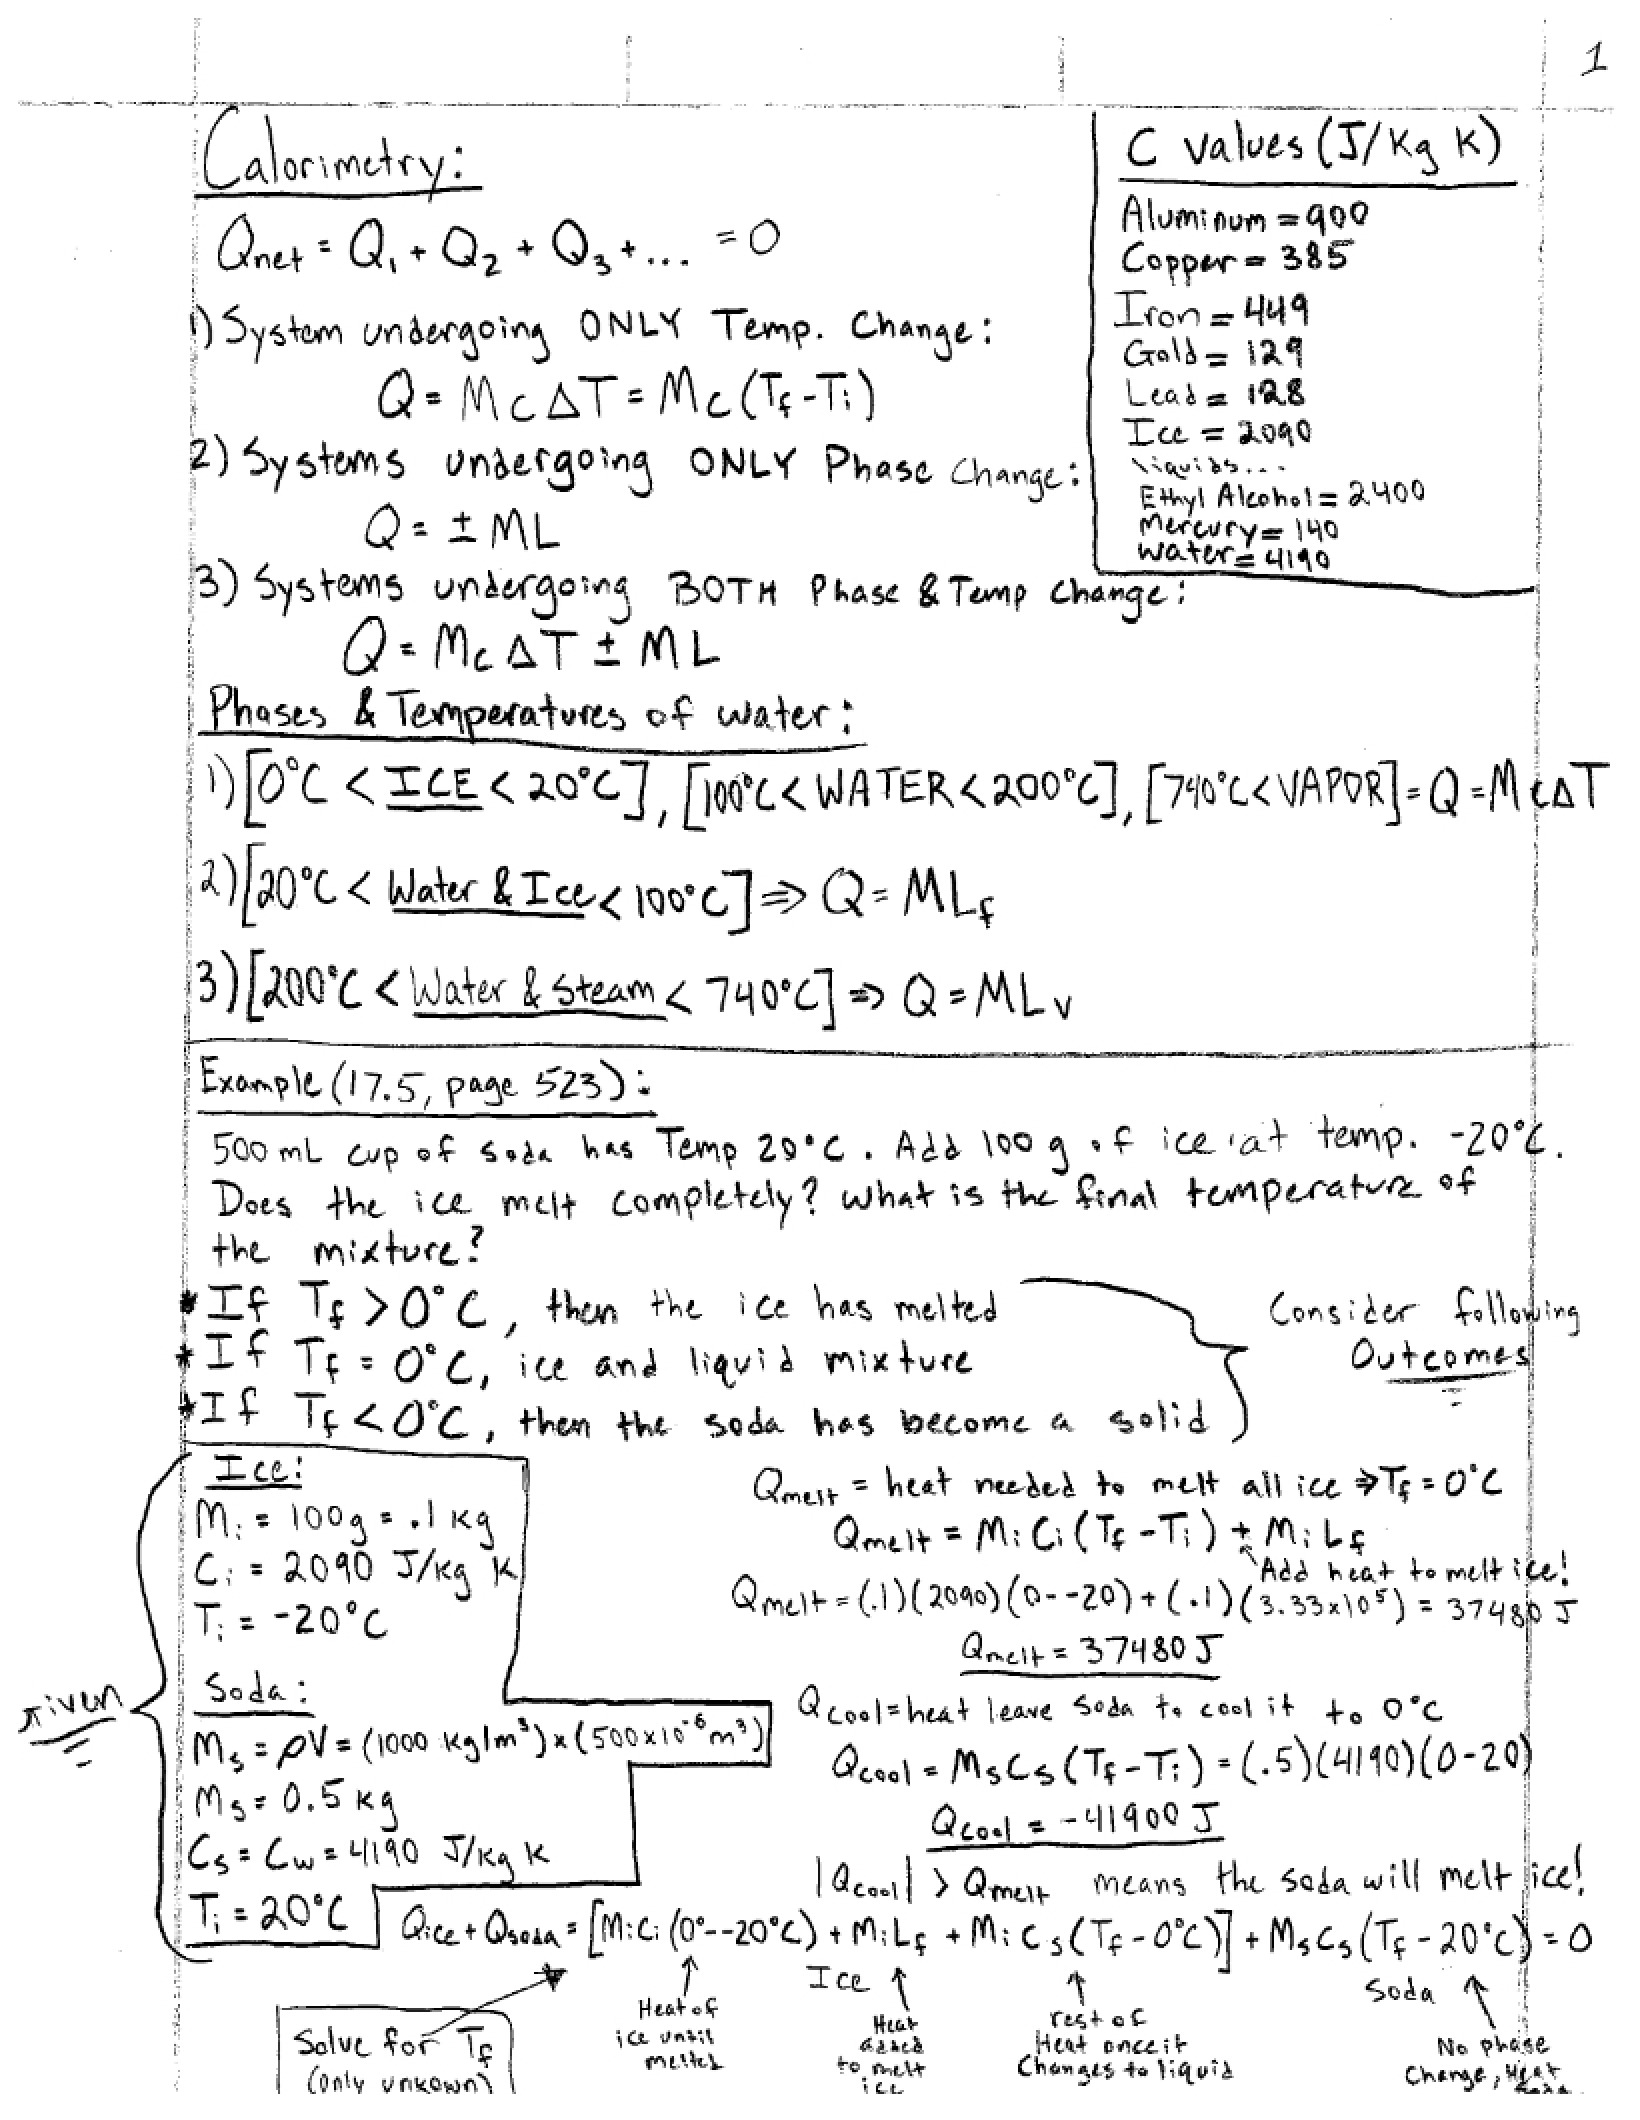 1
Calorimetry:
Qnet = Q₁ + Q₂ + Q₃ + ... = 0
1) System undergoing ONLY Temp. Change:
Q = McΔT = Mc(Tf-Ti)
2) Systems undergoing ONLY Phase Change:
Q = ± ML
3) Systems undergoing BOTH Phase & Temp Change:
Q = McΔT ± ML
C values (J/Kg K)
Aluminum = 900
Copper = 385
Iron = 449
Gold = 129
Lead = 128
Ice = 2090
liquids...
Ethyl Alcohol = 2400
Mercury = 140
Water = 4190
Phases & Temperatures of water:
1) [0°C < ICE < 20°C], [100°C < WATER < 200°C], [740°C < VAPOR] = Q = McΔT
2) [20°C < Water & Ice < 100°C] ⇒ Q = MLf
3) [200°C < Water & Steam < 740°C] ⇒ Q = MLv
Example (17.5, page 523):
500 mL cup of soda has Temp 20°C. Add 100 g of ice at temp. -20°C.
Does the ice melt completely? What is the final temperature of
the mixture?
* If Tf > 0°C, then the ice has melted
* If Tf = 0°C, ice and liquid mixture
* If Tf < 0°C, then the soda has become a solid
Consider following
Outcomes
Given
Ice:
Mi = 100g = .1 kg
Ci = 2090 J/kg K
Ti = -20°C
Soda:
Ms = ρV = (1000 kg/m³) x (500x10⁻⁶ m³)
Ms = 0.5 kg
Cs = Cw = 4190 J/kg K
Ti = 20°C
Qmelt = heat needed to melt all ice ⇒ Tf = 0°C
Qmelt = MiCi (Tf-Ti) + MiLf
Add heat to melt ice!
Qmelt = (.1)(2090)(0--20) + (.1)(3.33x10⁵) = 37480 J
Qmelt = 37480 J
Qcool = heat leave soda to cool it to 0°C
Qcool = MsCs (Tf-Ti) = (.5)(4190)(0-20)
Qcool = -41900 J
|Qcool| > Qmelt means the soda will melt ice!
Qice + Qsoda = [MiCi (0°--20°C) + MiLf + MiCs (Tf-0°C)] + MsCs (Tf-20°C) = 0
Ice
Soda
Solve for Tf
(only unkown)
Heat of
ice until
melted
Heat
added
to melt
ice
rest of
Heat once it
Changes to liquid
No phase
Change, Heat